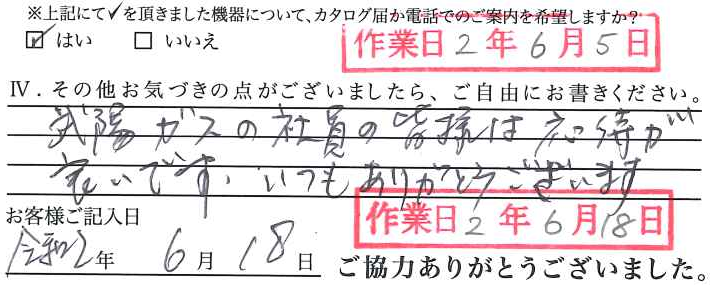 ※上記にて✓を頂きました機器について、カタログ届か電話でのご案内を希望しますか？
☑ はい □ いいえ
作業日 2 年 6 月 5 日
Ⅳ．その他お気づきの点がございましたら、ご自由にお書きください。
武陽ガスの社員の皆様は応待が
良いです。いつもありがとうございます
お客様ご記入日
作業日 2 年 6 月 18 日
令和2年 6月 18日
ご協力ありがとうございました。